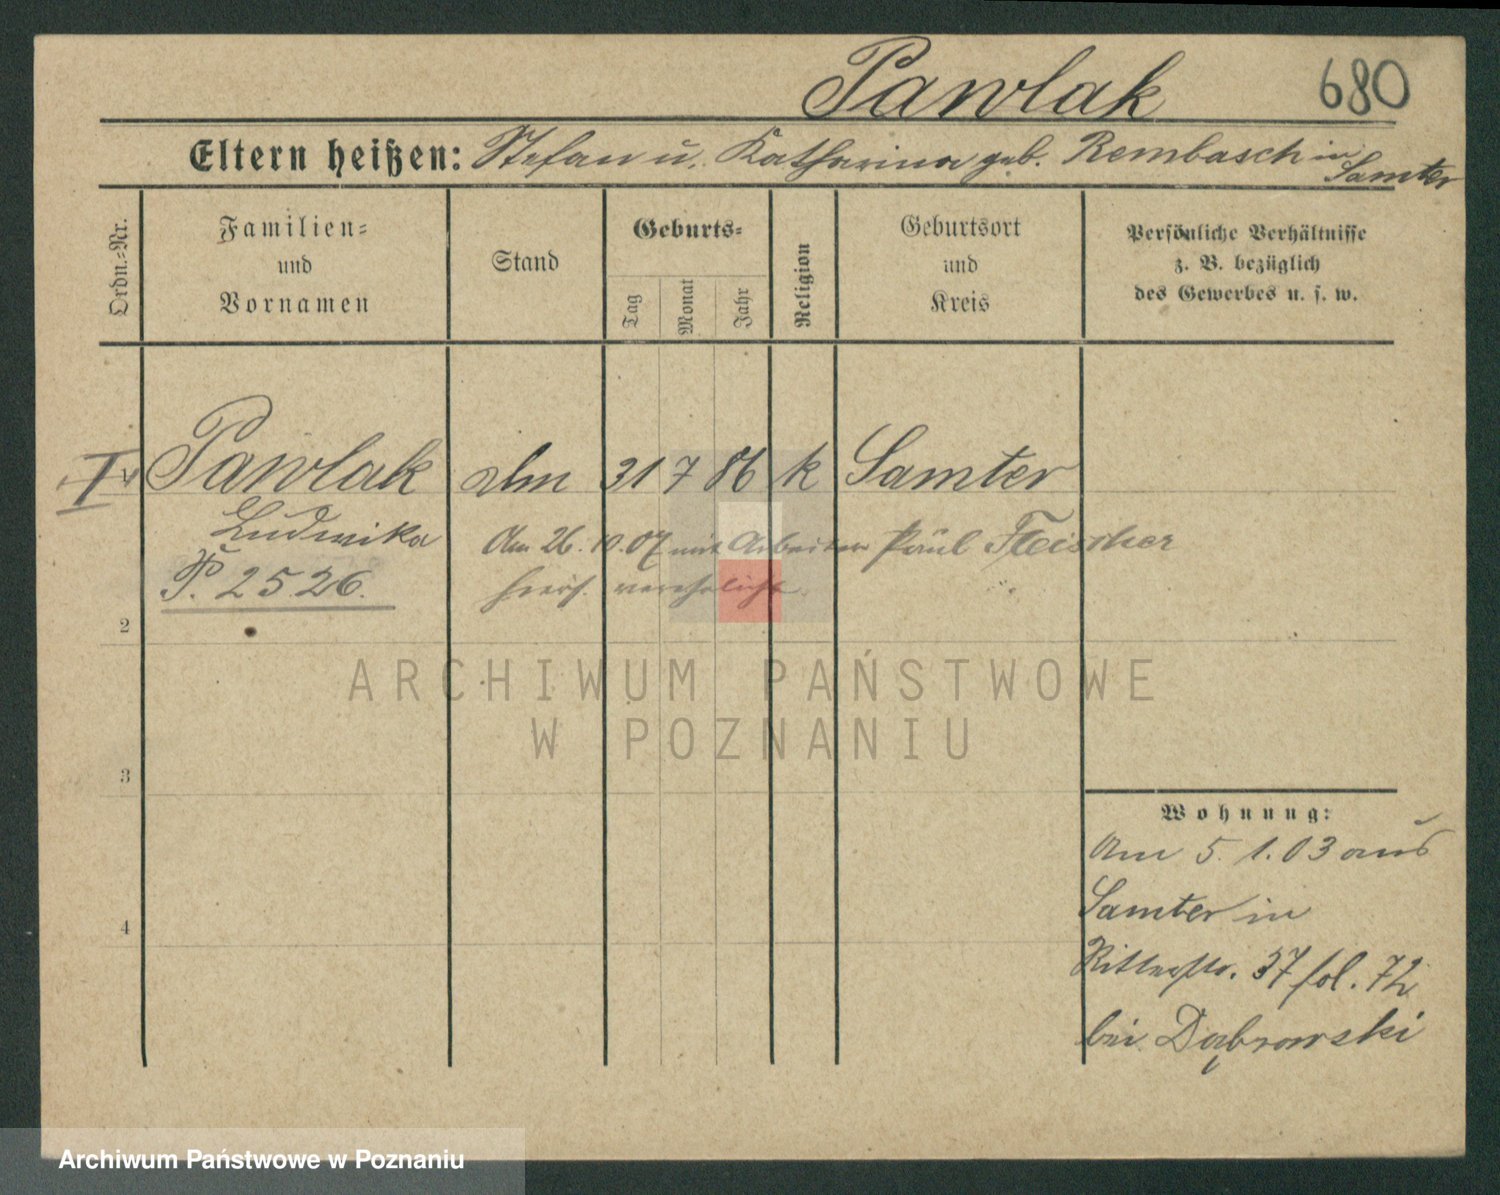 Pawlak 680
Eltern heißen: Stefan u. Katharina geb. Rembasch in Samter
Ordn.-Nr.
Familien-
und
Vornamen
Stand
Geburts-
Tag
Monat
Jahr
Religion
Geburtsort
und
Kreis
Persönliche Verhältnisse
z. B. bezüglich
des Gewerbes u. s. w.
Pawlak 31 7 86 k Samter
Ludwika
Am 26. 10. 07 mit Arbeiter Paul Fleischer
P. 2526.
hiers. verehelicht.
2
ARCHIWUM PAŃSTWOWE
W POZNANIU
3
4
Wohnung:
Am 5. 1. 03 aus
Samter in
Ritterstr. 37 fol. 72
bei Dąbrowski
Archiwum Państwowe w Poznaniu